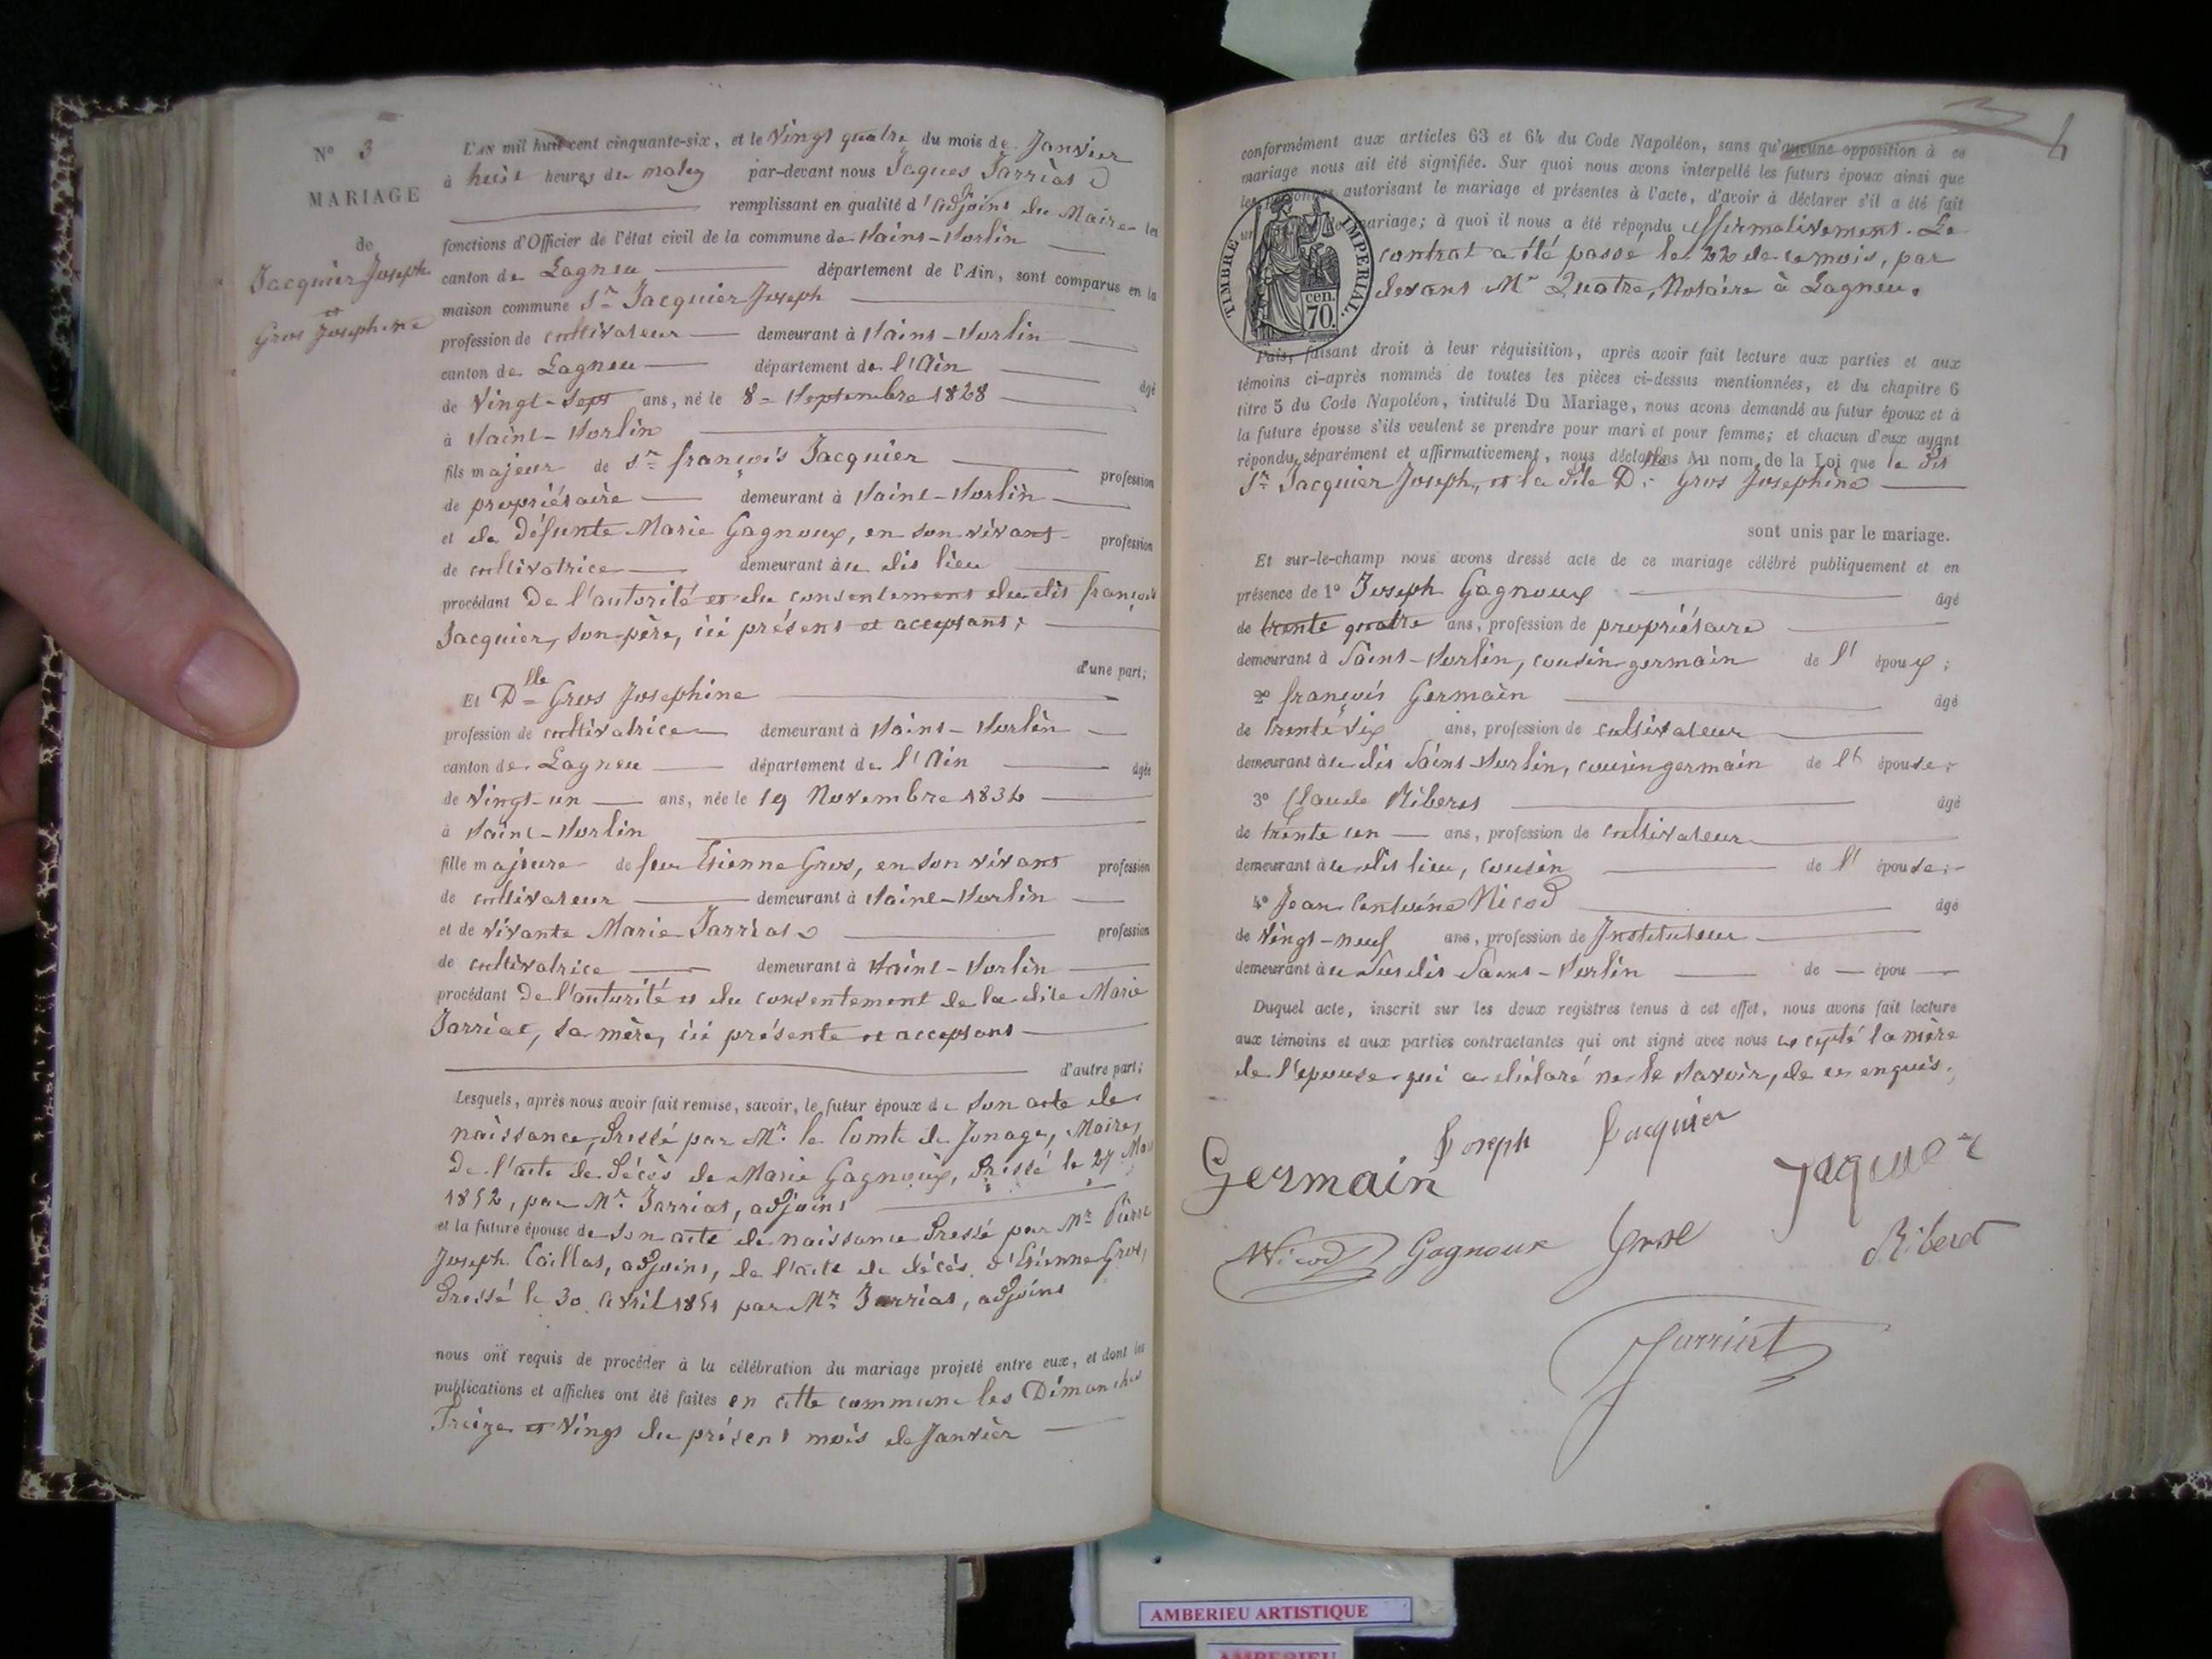 N° 3
MARIAGE
de
Jacquier Joseph
et
Gros Josephine
L'AN mil huit cent cinquante-six, et le Vingt quatre du mois de Janvier
à huit heures du matin par-devant nous Jaques Jarriat
remplissant en qualité d'adjoint du Maire les
fonctions d'Officier de l'état civil de la commune de Saint-Sorlin
canton de Lagneu département de l'Ain, sont comparus en la
maison commune Sr Jacquier Joseph
profession de cultivateur demeurant à Saint-Sorlin
canton de Lagneu département de l'Ain âgé
de Vingt-Sept ans, né le 8 Septembre 1828
à Saint-Sorlin
fils majeur de Sr françois Jacquier profession
de propriétaire demeurant à Saint-Sorlin
et de Défunte Marie Gagnoux, en son vivant profession
de cultivatrice demeurant à u dit lieu
procédant De l'autorité et du consentement du dit françois
Jacquier, son père, ici présent et acceptant;
d'une part;
Et Dlle Gros Josephine
profession de cultivatrice demeurant à Saint-Sorlin
canton de Lagneu département de l'Ain âgée
de Vingt-un ans, née le 19 Novembre 1834
à Saint-Sorlin
fille majeure de feu Etienne Gros, en son vivant profession
de cultivateur demeurant à Saint-Sorlin
et de vivante Marie Jarriat profession
de cultivatrice demeurant à Saint-Sorlin
procédant De l'autorité et du consentement de la dite Marie
Jarriat, sa mère, ici présente et acceptant
d'autre part;
Lesquels, après nous avoir fait remise, savoir, le futur époux de son acte de
naissance, Dressé par Mr. le Comte de Jonage, Maire,
De l'acte de Décès de Marie Gagnoux, Dressé le 27 Mai
1852, par Mr. Jarriat, adjoint
et la future épouse de Son acte de naissance Dressé par Mr Pierre
Joseph Caillat, adjoint, de l'acte de décès d'Etienne Gros,
Dressé le 30 Avril 1851 par Mr Jarriat, adjoint
nous ont requis de procéder à la célébration du mariage projeté entre eux, et dont les
publications et affiches ont été faites en cette commune les Dimanches
Treize et Vingt du présent mois de Janvier
4
conformément aux articles 63 et 64 du Code Napoléon, sans qu'aucune opposition à ce
mariage nous ait été signifiée. Sur quoi nous avons interpellé les futurs époux ainsi que
les autorisant le mariage et présentes à l'acte, d'avoir à déclarer s'il a été fait
mariage; à quoi il nous a été répondu affirmativement. Le
contrat a été passé le 22 de ce mois, par
devant Mr Quatre, Notaire à Lagneu.
TIMBRE IMPÉRIAL.
cen.
70.
Puis, faisant droit à leur réquisition, après avoir fait lecture aux parties et aux
témoins ci-après nommés de toutes les pièces ci-dessus mentionnées, et du chapitre 6
titre 5 du Code Napoléon, intitulé Du Mariage, nous avons demandé au futur époux et à
la future épouse s'ils veulent se prendre pour mari et pour femme; et chacun d'eux ayant
répondu séparément et affirmativement, nous déclarons Au nom de la Loi que le Dit
Sr Jacquier Joseph, et la dite Dlle Gros Josephine
sont unis par le mariage.
Et sur-le-champ nous avons dressé acte de ce mariage célébré publiquement et en
présence de 1° Joseph Gagnoux âgé
de trente quatre ans, profession de propriétaire
demeurant à Saint-Sorlin, cousin germain de l' époux;
2° françois Germain âgé
de trente six ans, profession de cultivateur
demeurant à u dit Saint-Sorlin, cousin germain de l' épouse;
3° Claude Riberet âgé
de trente un ans, profession de cultivateur
demeurant à u dit lieu, cousin de l' épouse;
4° Jean Antoine Nicod âgé
de Vingt-neuf ans, profession de Instituteur
demeurant à u Susdit Saint-Sorlin de épou
Duquel acte, inscrit sur les deux registres tenus à cet effet, nous avons fait lecture
aux témoins et aux parties contractantes qui ont signé avec nous excepté la mère
de l'épouse qui a déclaré ne le savoir, de ce enquis.
Joseph Jacquier
Germain Jaquier
Nicod Gagnoux Gros Riberet
Jarriat
AMBERIEU ARTISTIQUE
AMBERIEU